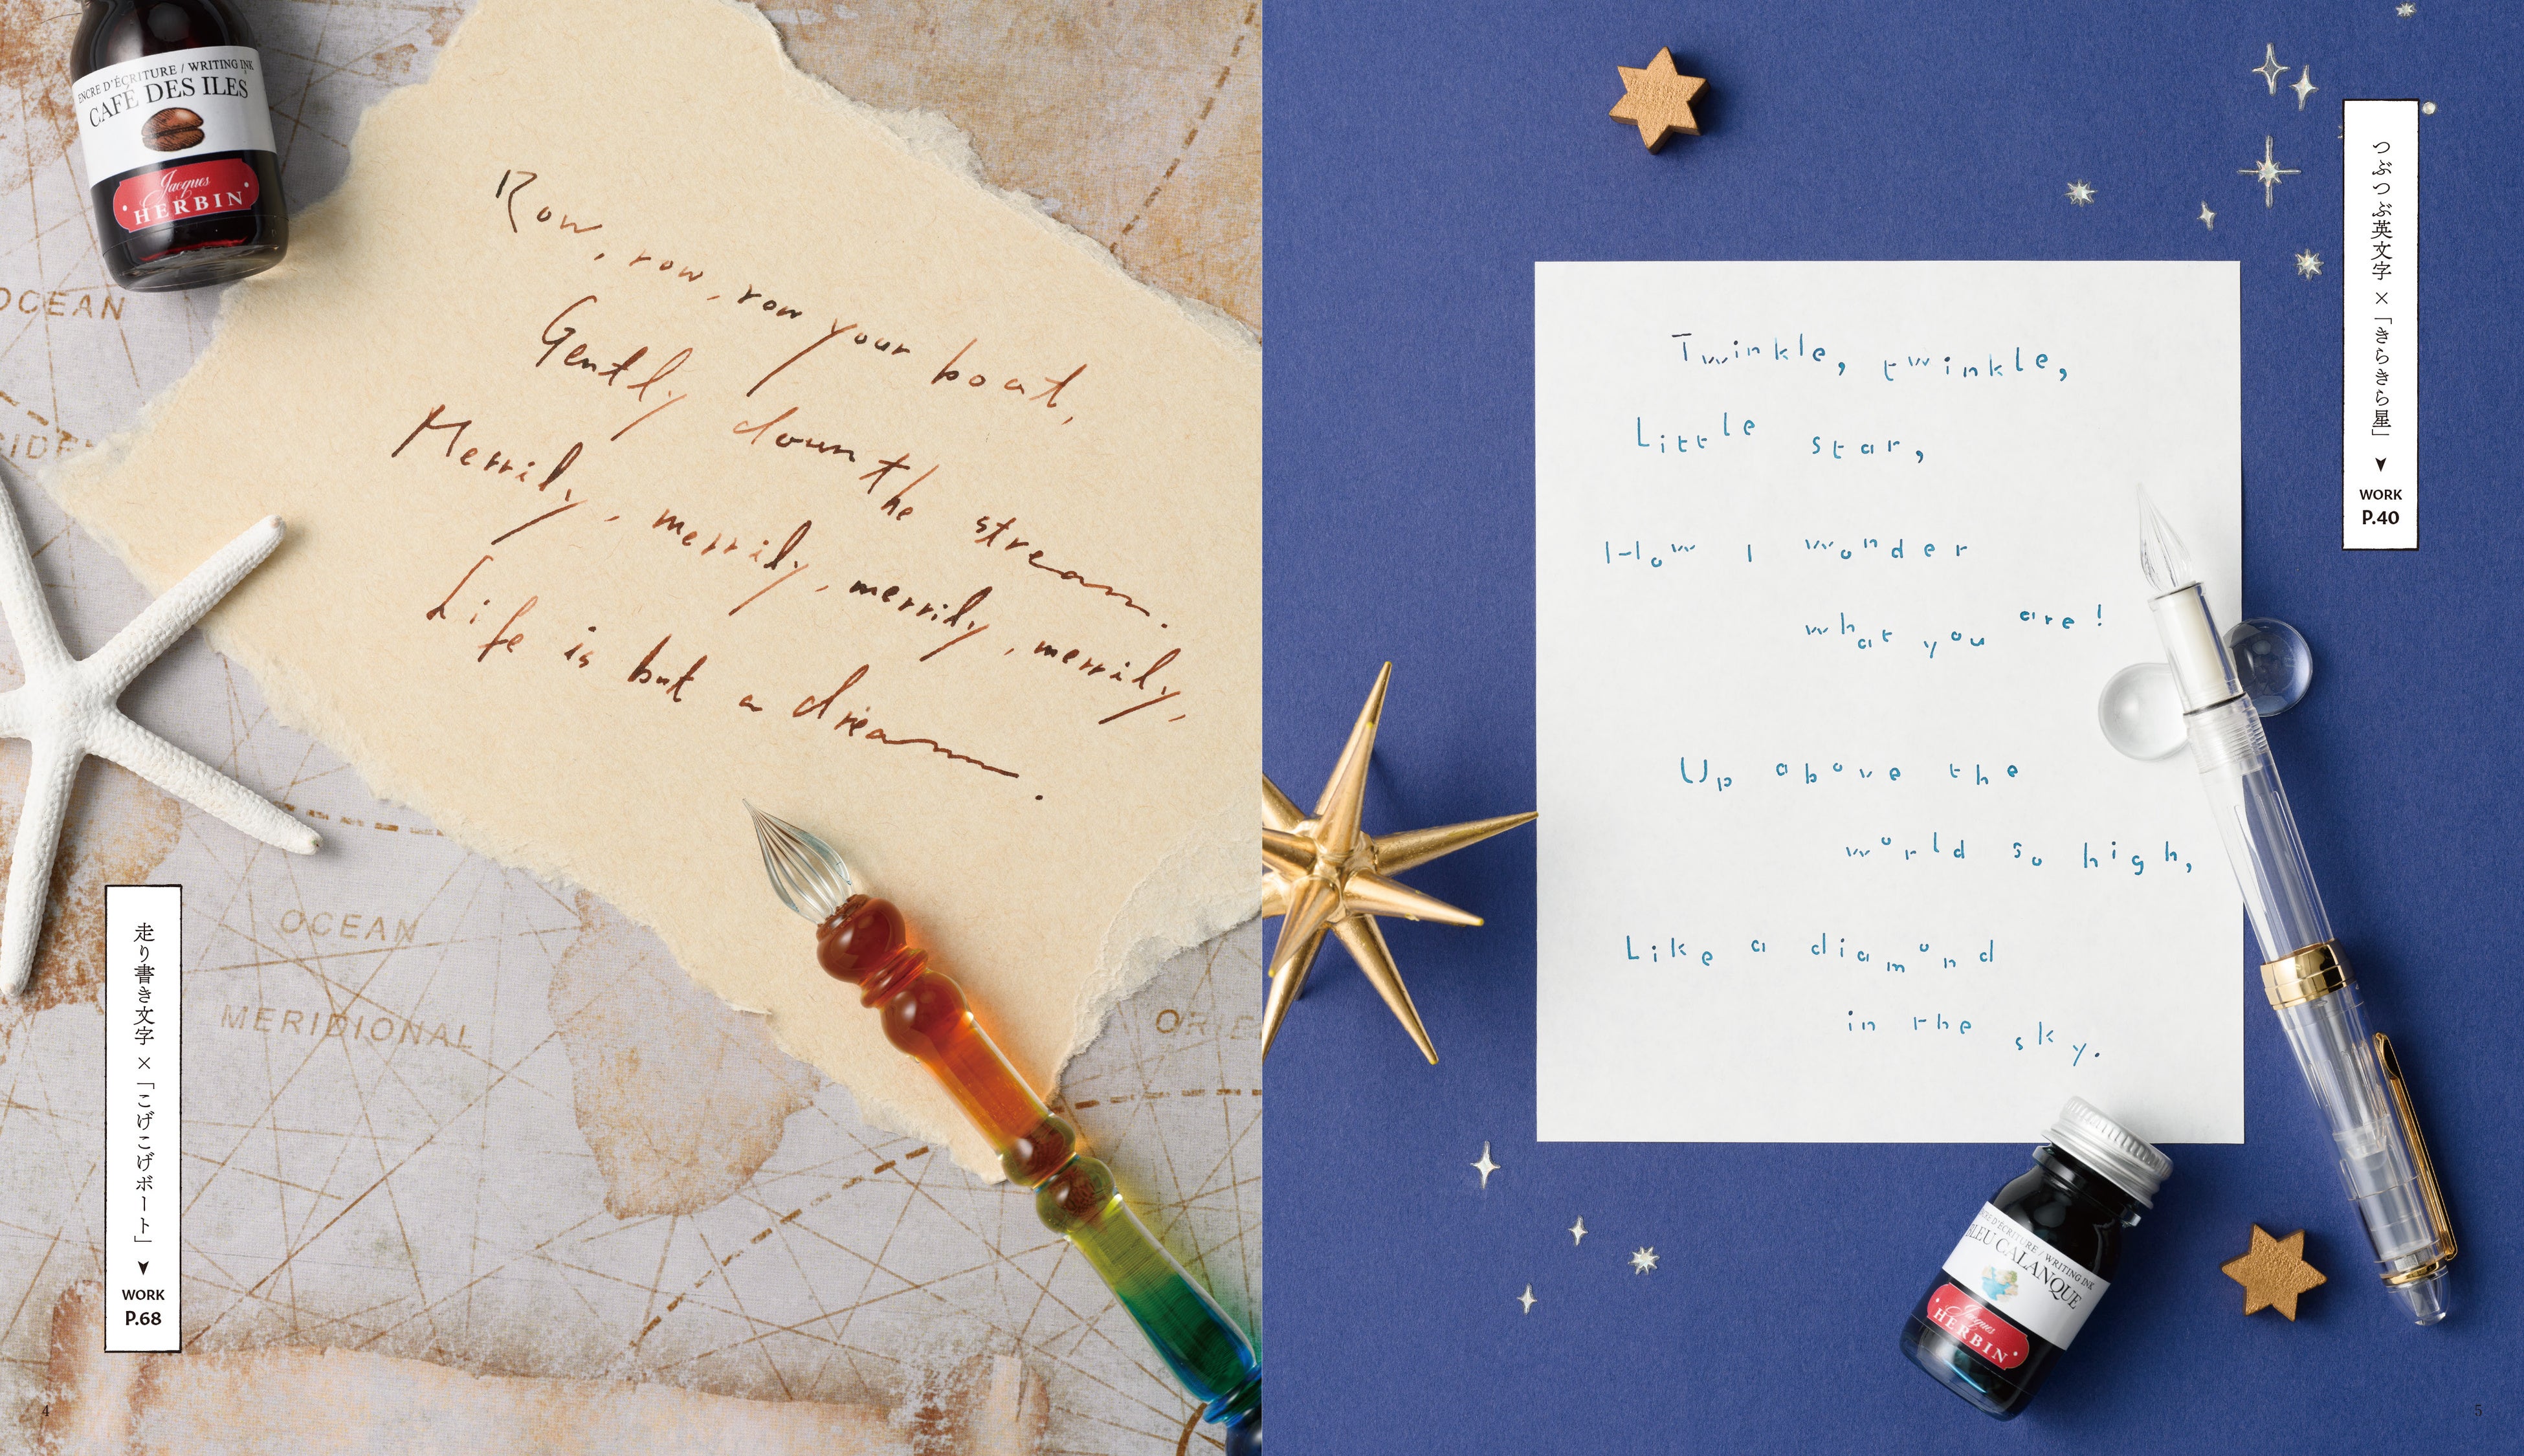 ENCRE D'ÉCRITURE / WRITING INK
CAFÉ DES ILES
Jacques
HERBIN
OCEAN
Row, row, row your boat,
Gently down the stream.
Merrily, merrily, merrily, merrily,
Life is but a dream.
OCEAN
MERIDIONAL
走り書き文字×「こげこげボート」
WORK
P.68
4
つぶつぶ英文字×「きらきら星」
WORK
P.40
Twinkle, twinkle,
Little star,
How I wonder
what you are!
Up above the
world so high,
Like a diamond
in the sky.
ENCRE D'ÉCRITURE / WRITING INK
BLEU CALANQUE
Jacques
HERBIN
5